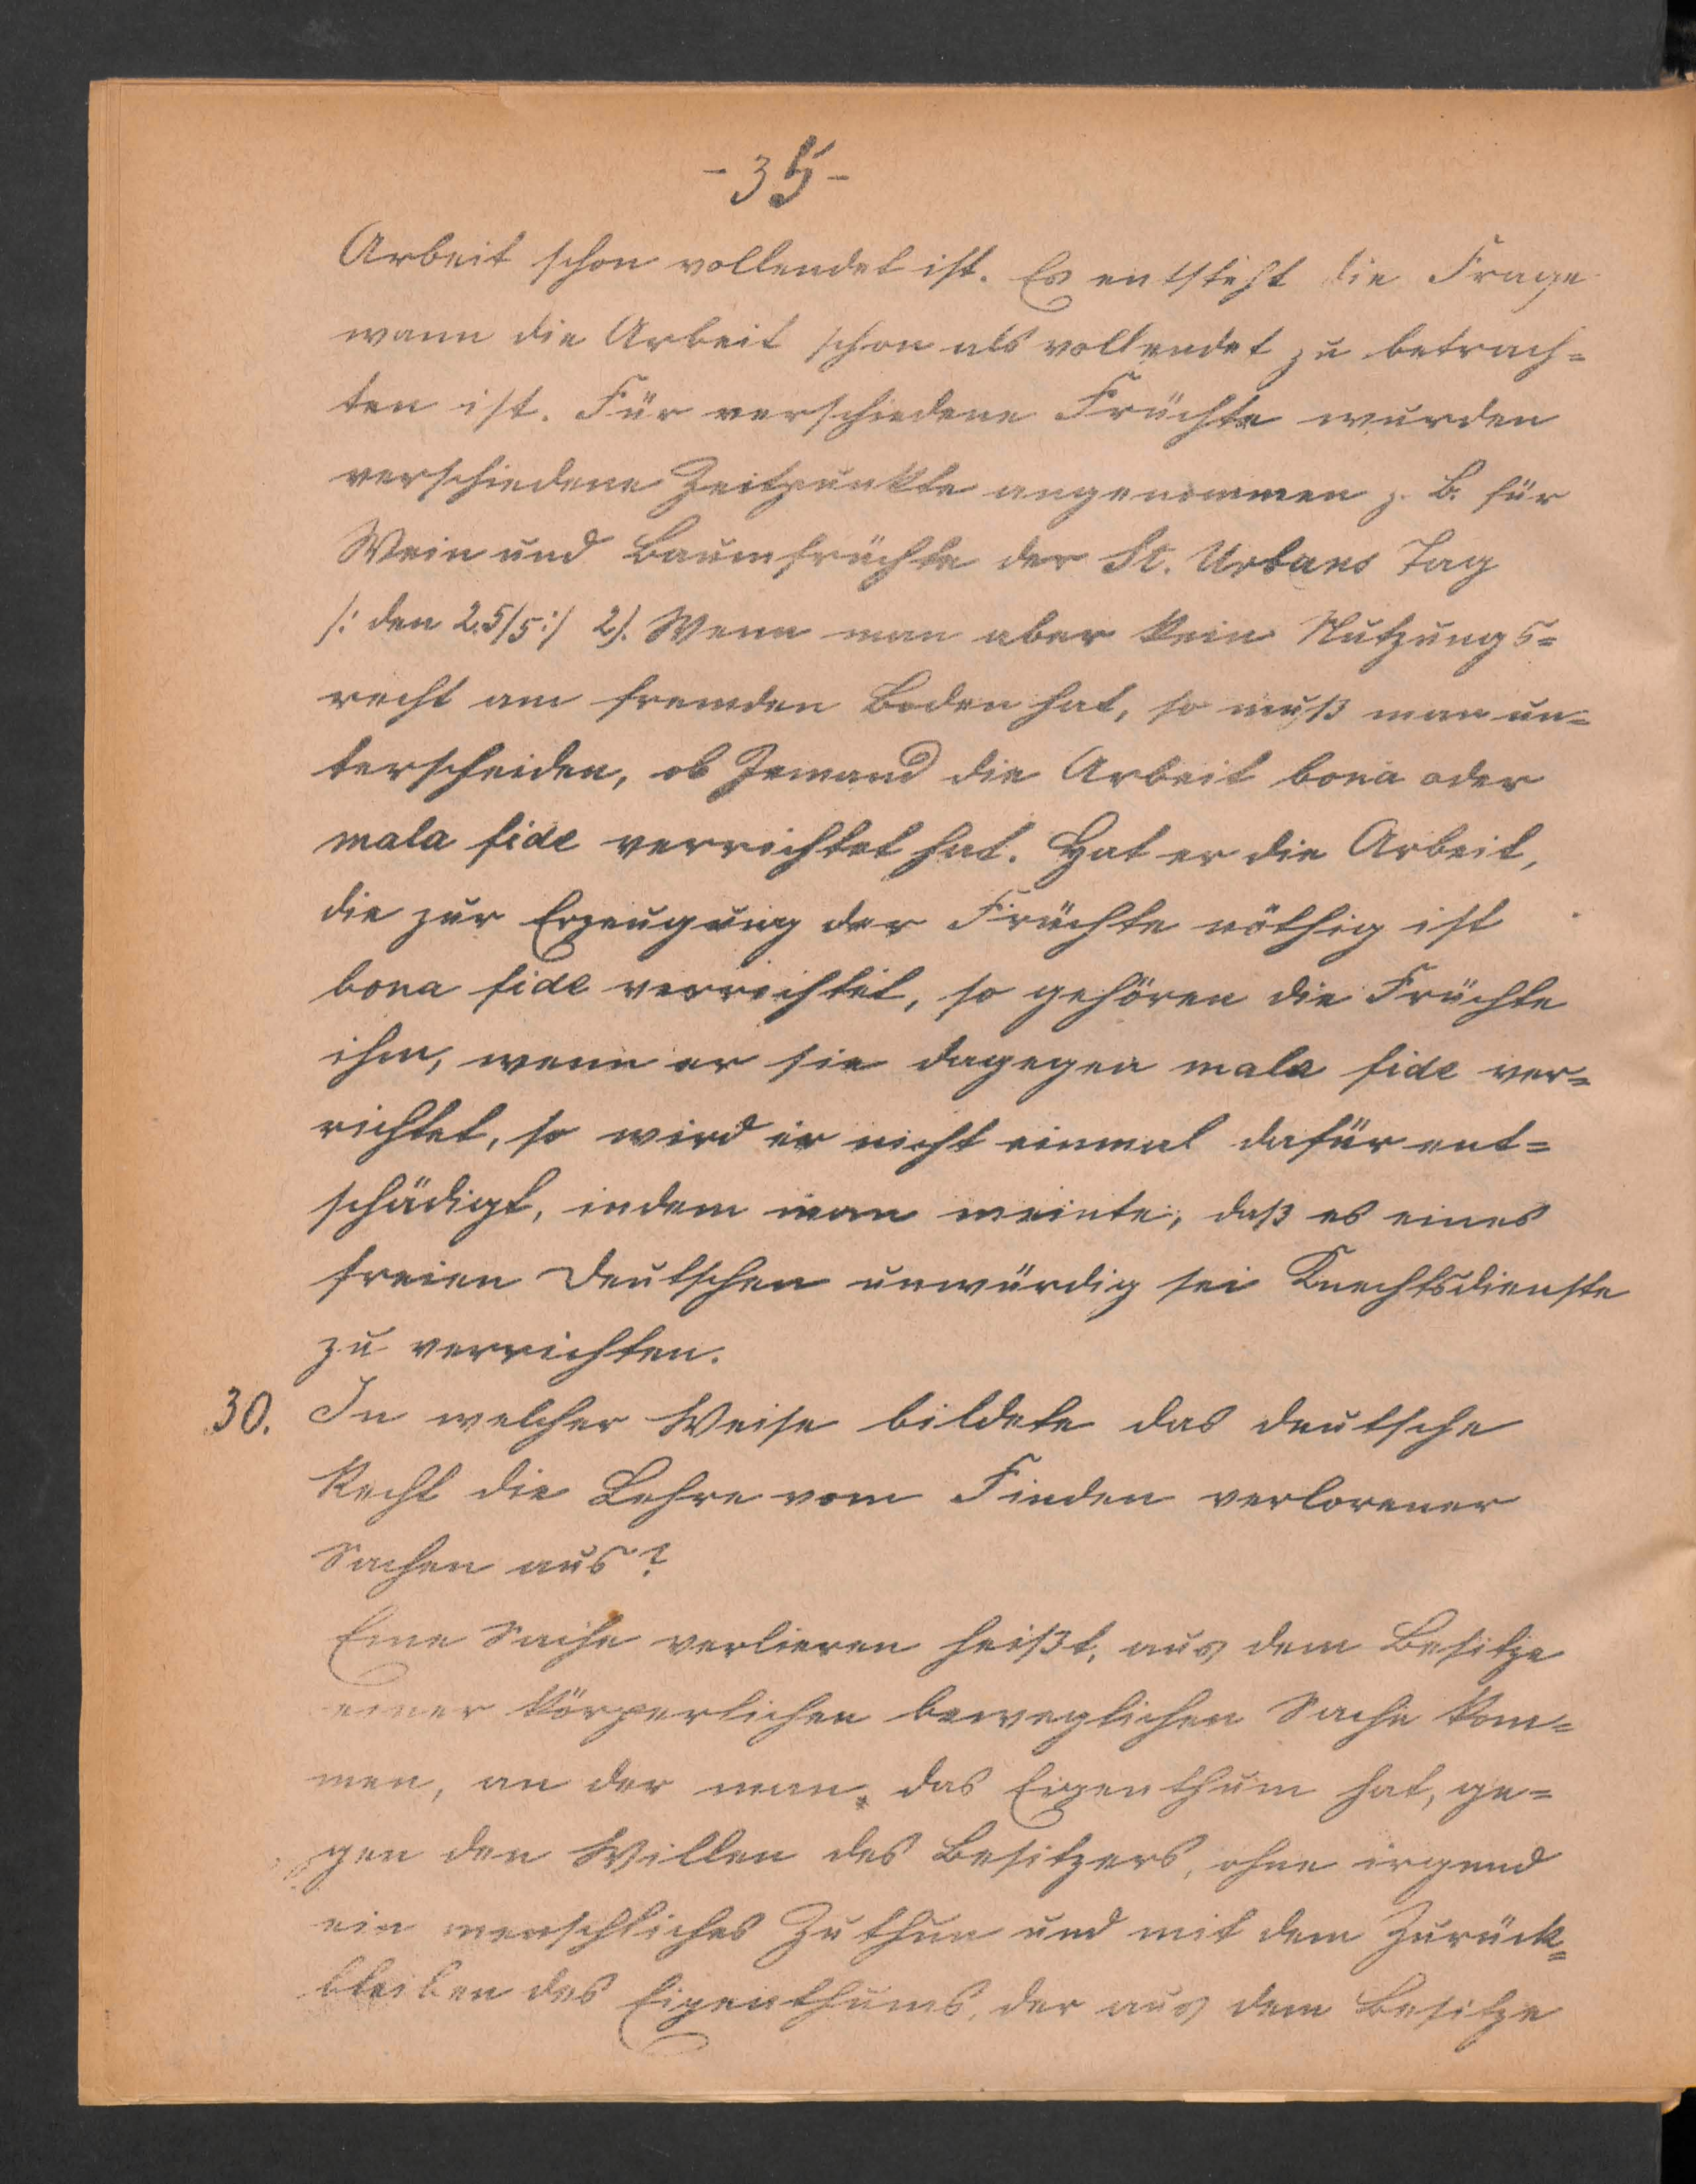 - 35 -
Arbeit schon vollendet ist. Es entsteht die Frage
wann die Arbeit schon als vollendet zu betrach=
ten ist. Für verschiedene Früchte wurden
verschiedene Zeitpunkte angenommen z. B. für
Wein und Baumfrüchte der St. Urbans Tag
/: den 25/5 :/ 2). Wenn man aber kein Nutzungs=
recht am fremden Boden hat, so muß man un=
terscheiden, ob Jemand die Arbeit bona oder
mala fide verrichtet hat. Hat er die Arbeit,
die zur Erzeugung der Früchte nöthig ist
bona fide verrichtet, so gehören die Früchte
ihm, wenn er sie dagegen mala fide ver=
richtet, so wird er nicht einmal dafür ent=
schädigt, indem man meinte, daß es eines
freien Deutschen unwürdig sei Knechtsdienste
zu verrichten.
30. In welcher Weise bildete das deutsche
Recht die Lehre vom Finden verlorener
Sachen aus?
Eine Sache verlieren heißt, aus dem Besitze
einer körperlichen beweglichen Sache kom=
men, an der man das Eigenthum hat, ge=
gen den Willen des Besitzers, ohne irgend
ein menschliches Zuthun und mit dem Zurück=
bleiben des Eigenthums, der aus dem Besitze